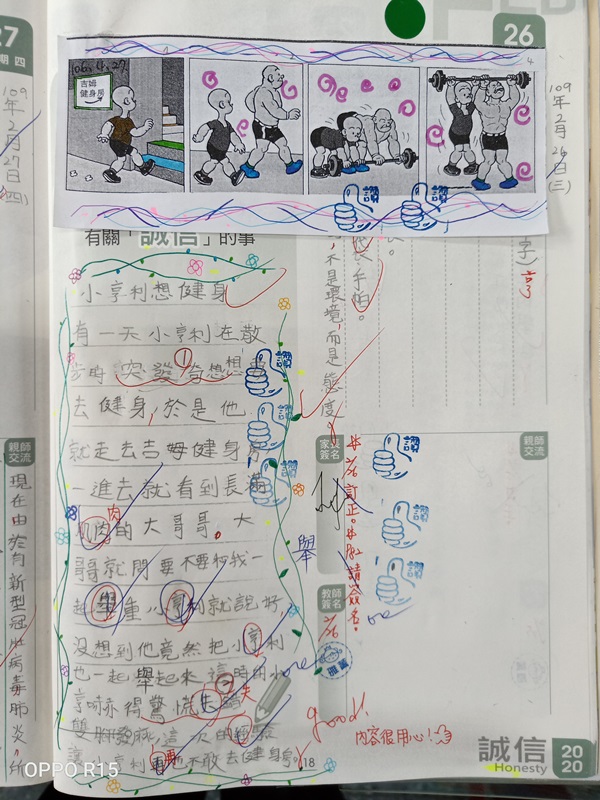 27
期四
109年2月27日(四)
親師交流
現在由於有新型冠狀病毒肺炎,所
106.4.27
吉姆
健身房
4
讚
讚
有關「誠信」的事
小亨利想健身
有一天小亨利在散
步時突發奇想想
去健身,於是他
就走去吉姆健身房
一進去就看到長滿
肌肉的大哥哥。大
肉
哥就問要不要和我一
起舉重小亨利就說好,
沒想到他竟然把小亨利
也一起舉起來這時的小
亨嚇得驚慌失措
失
雙腳發
這次的經驗
讓小亨利再也不敢去健身房
再
舉
讚
讚
讚
26
109年2月26日(三)
字)
不是環境,而是態度。
家長簽名
2/26訂正。
請簽名。
讚
讚
讚
教師簽名
2/26
親師交流
good!
內容很用心!
18
誠信
Honesty
20
20
OPPO R15